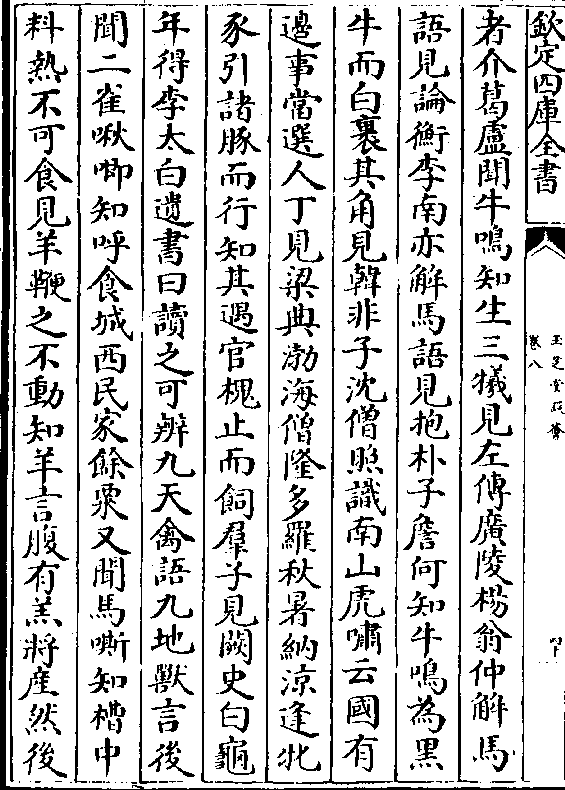 欽定四庫全書
玉芝堂談薈
卷八
者介葛盧聞牛鳴知生三犧見左傳廣陵楊翁仲解馬
語見論衡李南亦解馬語見抱朴子詹何知牛鳴為黑
牛而白裹其角見韓非子沈僧照識南山虎嘯云國有
邊事當選人丁見梁典渤海僧隆多羅秋暑納涼逢牝
豕引諸豚而行知其遇官槐止而飼羣子見闕史白龜
年得李太白遺書曰讀之可辨九天禽語九地獸言後
聞二雀啾唧知呼食城西民家餘粟又聞馬嘶知槽中
料熱不可食見羊鞭之不動知羊言腹有羔將産然後